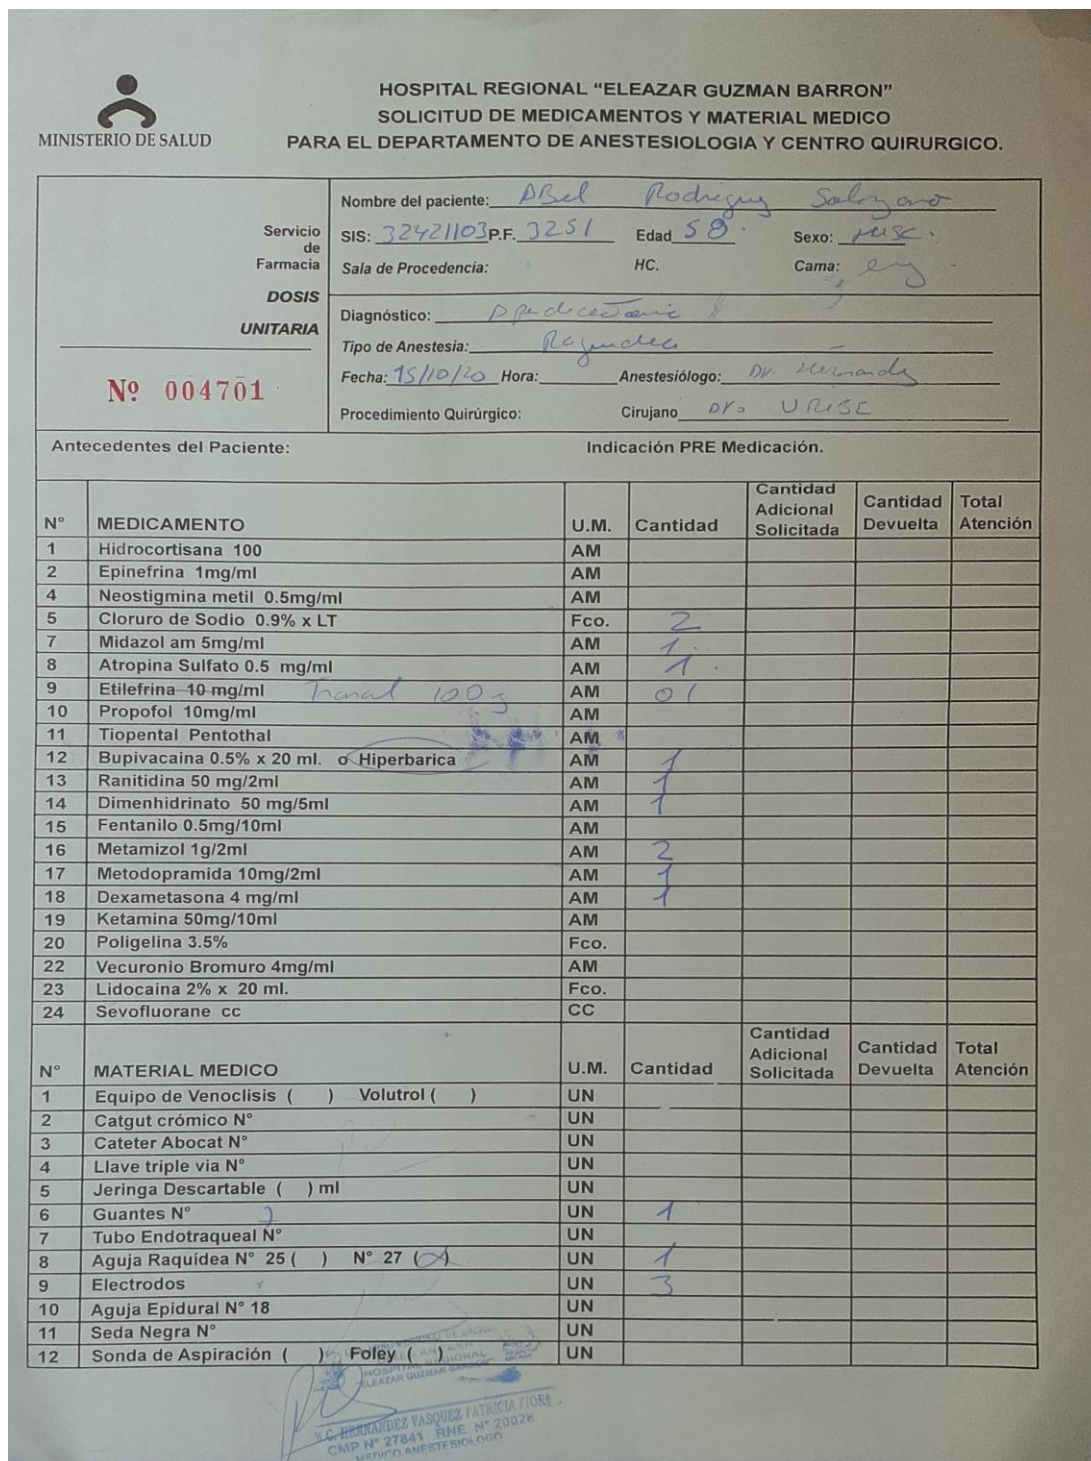 MINISTERIO DE SALUD
HOSPITAL REGIONAL “ELEAZAR GUZMAN BARRON”
SOLICITUD DE MEDICAMENTOS Y MATERIAL MEDICO
PARA EL DEPARTAMENTO DE ANESTESIOLOGIA Y CENTRO QUIRURGICO.
Servicio
de
Farmacia
DOSIS
UNITARIA
Nº 004701
Nombre del paciente: ABel Rodriguez
SIS: 32421103 P.F. 3251 Edad 58. Sexo: MASC.
Sala de Procedencia: HC. Cama:
Diagnóstico:
Tipo de Anestesia: Raquidea
Fecha: 15/10/20 Hora: Anestesiólogo: Dr. Hernandez
Procedimiento Quirúrgico: Cirujano Dro URISE
Antecedentes del Paciente: Indicación PRE Medicación.
N° MEDICAMENTO U.M. Cantidad Cantidad Adicional Solicitada Cantidad Devuelta Total Atención
1 Hidrocortisana 100 AM
2 Epinefrina 1mg/ml AM
4 Neostigmina metil 0.5mg/ml AM
5 Cloruro de Sodio 0.9% x LT Fco. 2
7 Midazol am 5mg/ml AM 1.
8 Atropina Sulfato 0.5 mg/ml AM 1.
9 Etilefrina 10 mg/ml Tramal 100 AM 01
10 Propofol 10mg/ml AM
11 Tiopental Pentothal AM
12 Bupivacaina 0.5% x 20 ml. o Hiperbarica AM 1
13 Ranitidina 50 mg/2ml AM 1
14 Dimenhidrinato 50 mg/5ml AM 1
15 Fentanilo 0.5mg/10ml AM
16 Metamizol 1g/2ml AM 2
17 Metodopramida 10mg/2ml AM 1
18 Dexametasona 4 mg/ml AM 1
19 Ketamina 50mg/10ml AM
20 Poligelina 3.5% Fco.
22 Vecuronio Bromuro 4mg/ml AM
23 Lidocaina 2% x 20 ml. Fco.
24 Sevofluorane cc CC
N° MATERIAL MEDICO U.M. Cantidad Cantidad Adicional Solicitada Cantidad Devuelta Total Atención
1 Equipo de Venoclisis ( ) Volutrol ( ) UN
2 Catgut crómico N° UN
3 Cateter Abocat N° UN
4 Llave triple via N° UN
5 Jeringa Descartable ( ) ml UN
6 Guantes N° UN 1
7 Tubo Endotraqueal N° UN
8 Aguja Raquídea N° 25 ( ) N° 27 ( ) UN 1
9 Electrodos UN 3
10 Aguja Epidural N° 18 UN
11 Seda Negra N° UN
12 Sonda de Aspiración ( ) Foley ( ) UN
HOSPITAL REGIONAL
"ELEAZAR GUZMAN BARRON"
M.C. HERNANDEZ VASQUEZ PATRICIA FIORE
CMP N° 27841 RNE N° 20028
MEDICO ANESTESIOLOGO